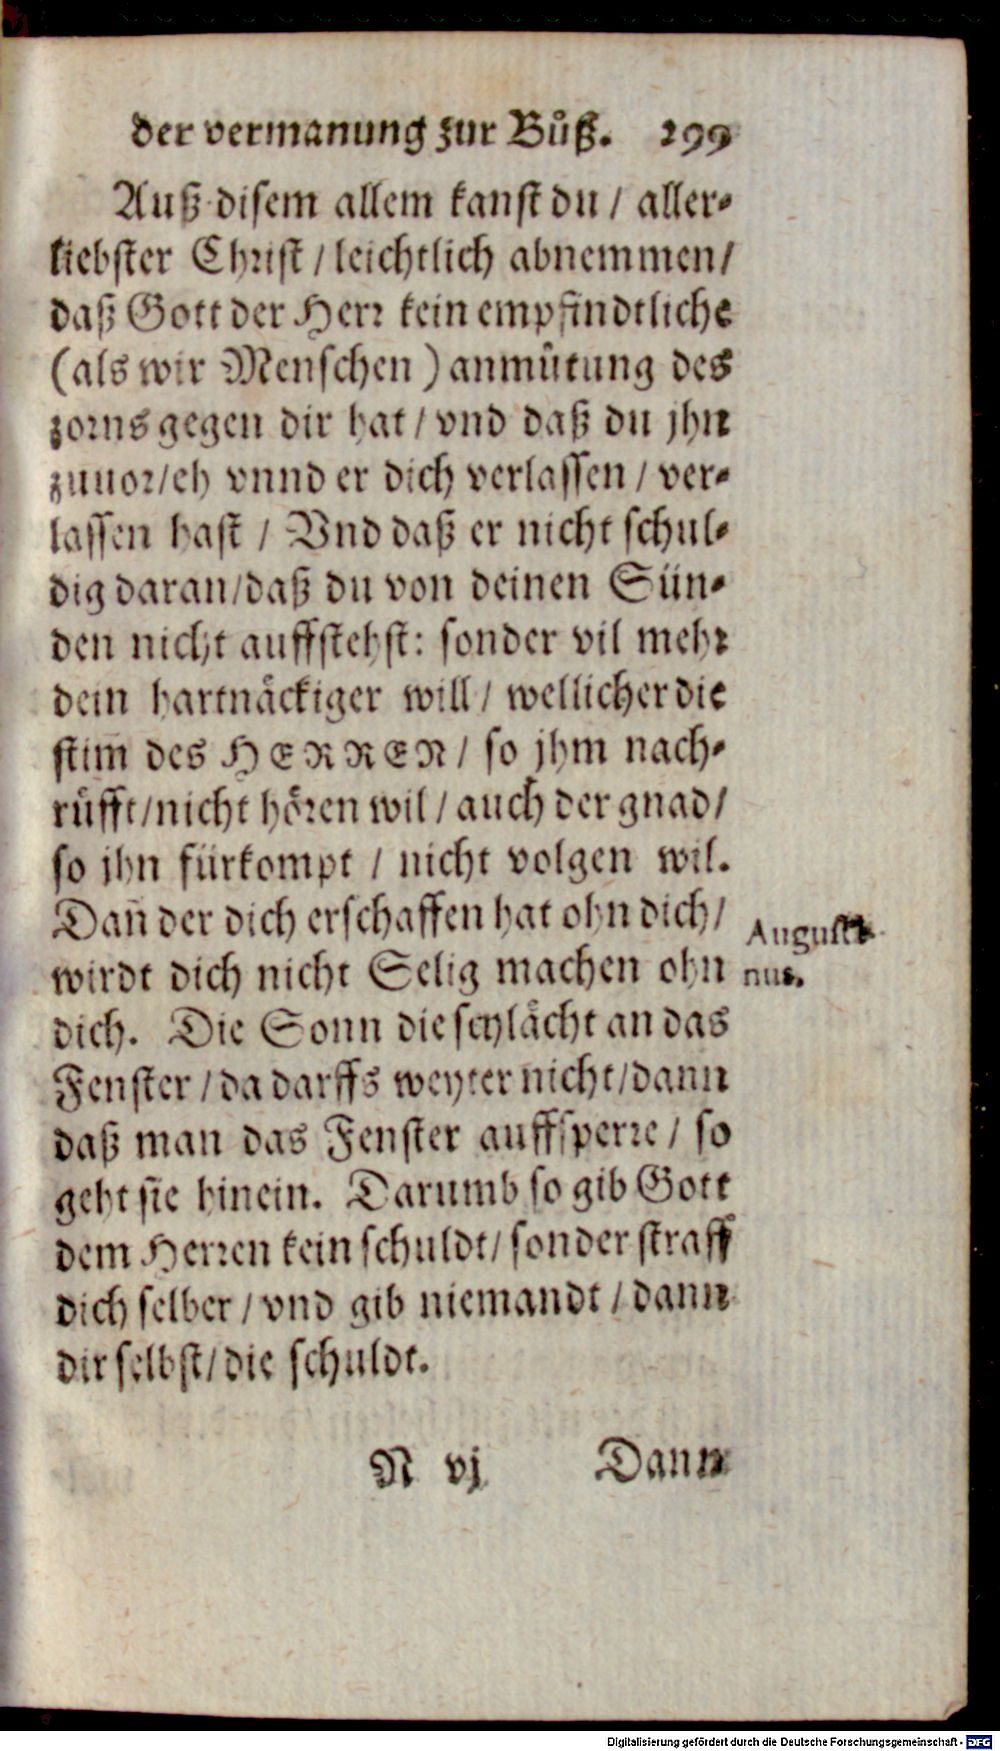 der vermanung zur Bůß. 299
Auß disem allem kanst du / aller⸗
liebster Christ / leichtlich abnemmen /
daß Gott der Herr kein empfindtliche
(als wir Menschen) anmůtung des
zorns gegen dir hat / vnd daß du jhn
zuuor / eh vnnd er dich verlassen / ver⸗
lassen hast / Vnd daß er nicht schul⸗
dig daran / daß du von deinen Sün⸗
den nicht auffstehst: sonder vil mehr
dein hartnäckiger will / wellicher die
stim̃ des HERREN / so jhm nach⸗
růfft / nicht hören wil / auch der gnad /
so jhn fürkompt / nicht volgen wil.
Dañ der dich erschaffen hat ohn dich /
Augusti
wirdt dich nicht Selig machen ohn
nus.
dich. Die Sonn die scylächt an das
Fenster / da darffs weyter nicht / dann
daß man das Fenster auffsperre / so
geht sie hinein. Darumb so gib Gott
dem Herren kein schuldt / sonder straff
dich selber / vnd gib niemandt / dann
dir selbst / die schuldt.
N vj Dann
Digitalisierung gefördert durch die Deutsche Forschungsgemeinschaft - DFG